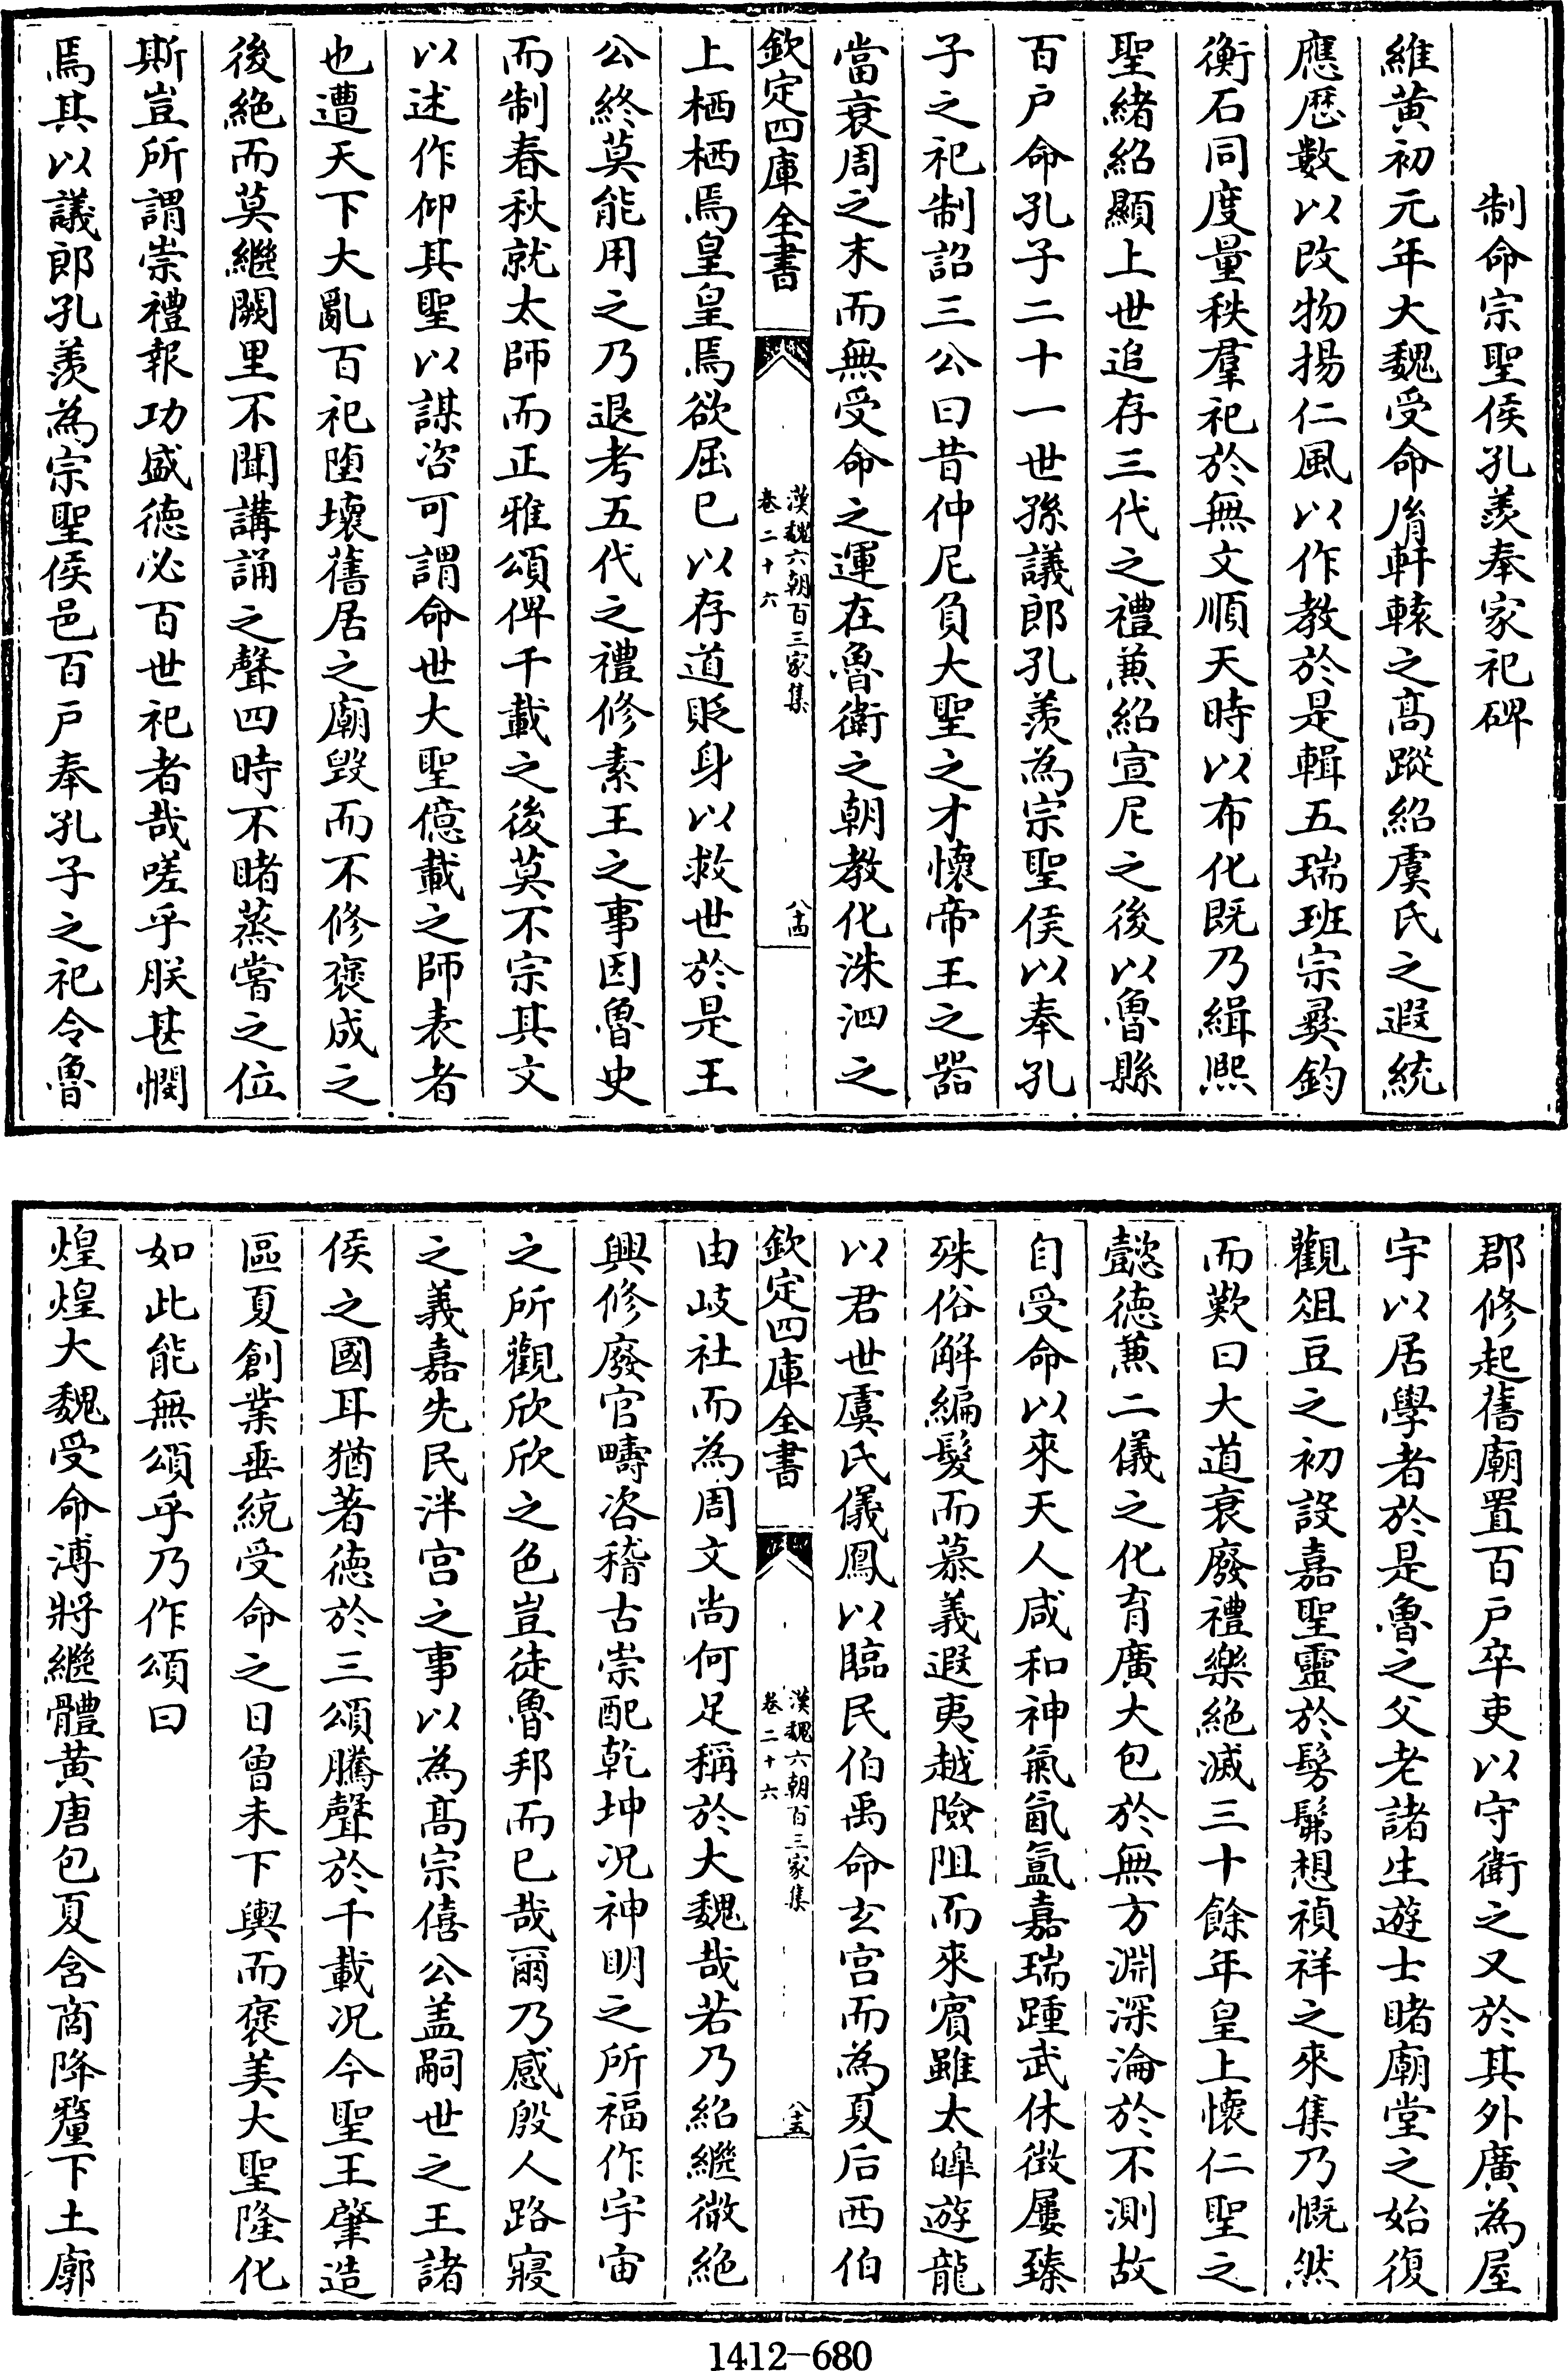 制命宗聖侯孔羨奉家祀碑
維黄初元年大魏受命胤軒轅之髙蹤紹虞氏之遐統
應厯數以改物揚仁風以作教於是輯五瑞班宗彛鈞
衡石同度量秩羣祀於無文順天時以布化既乃緝熙
聖緒紹顯上世追存三代之禮兼紹宣尼之後以魯縣
百户命孔子二十一世孫議郎孔羨為宗聖侯以奉孔
子之祀制詔三公曰昔仲尼負大聖之才懷帝王之器
當衰周之末而無受命之運在魯衛之朝教化洙泗之
欽定四庫全書
漢魏六朝百三家集
卷二十六
八十四
上栖栖焉皇皇焉欲屈已以存道貶身以救世於是王
公終莫能用之乃退考五代之禮修素王之事因魯史
而制春秋就太師而正雅頌俾千載之後莫不宗其文
以述作仰其聖以謀咨可謂命世大聖億載之師表者
也遭天下大亂百祀堕壞舊居之廟毀而不修褒成之
後絶而莫繼闕里不聞講誦之聲四時不睹蒸嘗之位
斯豈所謂崇禮報功盛徳必百世祀者哉嗟乎朕甚憫
焉其以議郎孔羨為宗聖侯邑百户奉孔子之祀令魯
郡修起舊廟置百户卒吏以守衛之又於其外廣為屋
宇以居學者於是魯之父老諸生遊士睹廟堂之始復
觀俎豆之初設嘉聖靈於髣髴想禎祥之來集乃慨然
而歎曰大道衰廢禮樂絶滅三十餘年皇上懷仁聖之
懿徳兼二儀之化育廣大包於無方淵深淪於不測故
自受命以來天人咸和神氣氤氲嘉瑞踵武休徴屢臻
殊俗解編髮而慕義遐夷越險阻而來賔雖太皥遊龍
以君世虞氏儀鳳以臨民伯禹命玄宫而為夏后西伯
欽定四庫全書
漢魏六朝百三家集
卷二十六
八十五
由岐社而為周文尚何足稱於大魏哉若乃紹繼微絶
興修廢官疇咨稽古崇配乾坤况神明之所福作宇宙
之所觀欣欣之色豈徒魯邦而已哉爾乃感殷人路寢
之義嘉先民泮宫之事以為髙宗僖公盖嗣世之王諸
侯之國耳猶著徳於三頌騰聲於千載况今聖王肇造
區夏創業垂統受命之日曾未下輿而褒美大聖隆化
如此能無頌乎乃作頌曰
煌煌大魏受命溥將繼體黄唐包夏含商降釐下土廓
1412-680